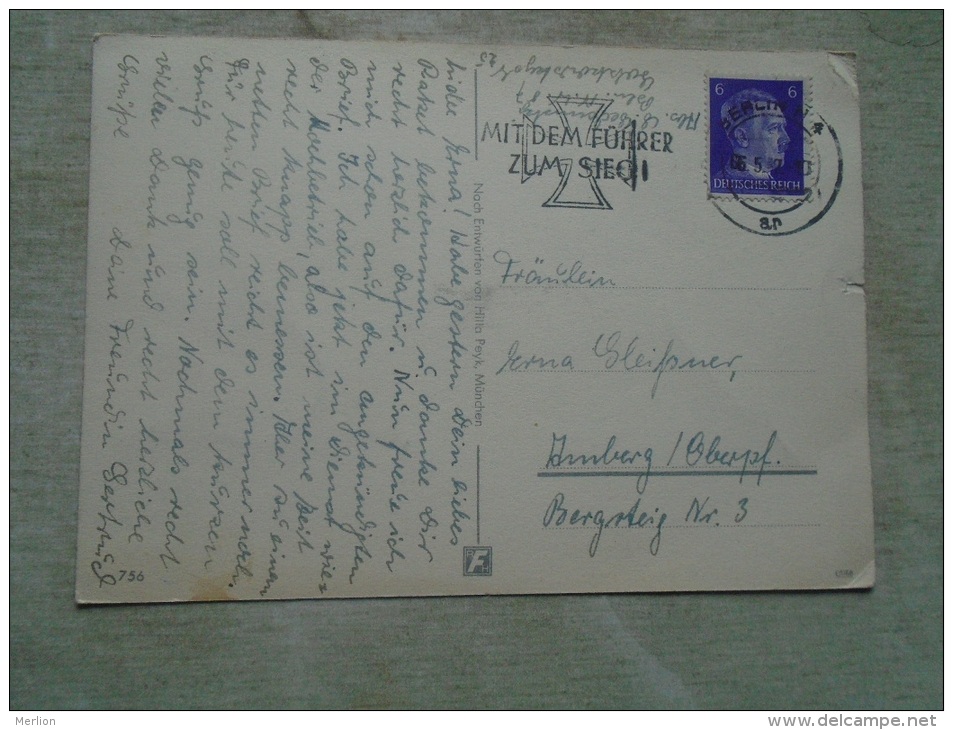 Liebe Erna! Habe gestern Dein liebes
Paket bekommen u. danke Dir
recht herzlich dafür. Nun freue ich
mich schon auf den angekündigten
Brief. Ich habe jetzt im Dienst wie-
der Hochbetrieb, also ist meine Zeit
recht knapp bemessen. Aber zu einem
netten Brief reicht es immer noch.
Für heute soll mit dem kurzen
Gruß genug sein. Nochmals recht
vielen Dank und recht herzliche
Grüße Deine Freundin Gertrud
756
Nach Entwürfen von Hilla Peyk, München
F
Abs.
MIT DEM FÜHRER
ZUM SIEG!
BERLIN
ar
6 6
DEUTSCHES REICH
Fräulein
Erna Gleißner,
Amberg/Oberpf.
Bergsteig Nr. 3
Merlion
www.delcampe.net